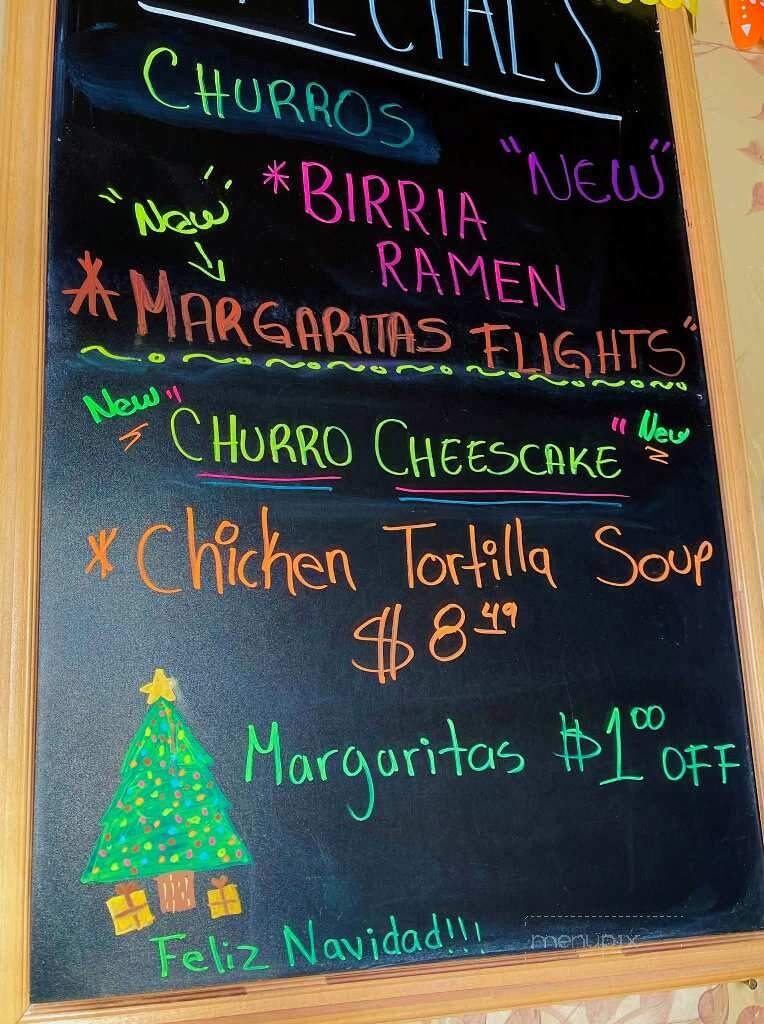 SPECIALS
CHURROS
"NEW"
*BIRRIA
RAMEN
"New"
*MARGARITAS FLIGHTS"
New "CHURRO CHEESCAKE" New
*Chicken Tortilla Soup
$8.49
Margaritas $1.00 OFF
Feliz Navidad!!!
menupix